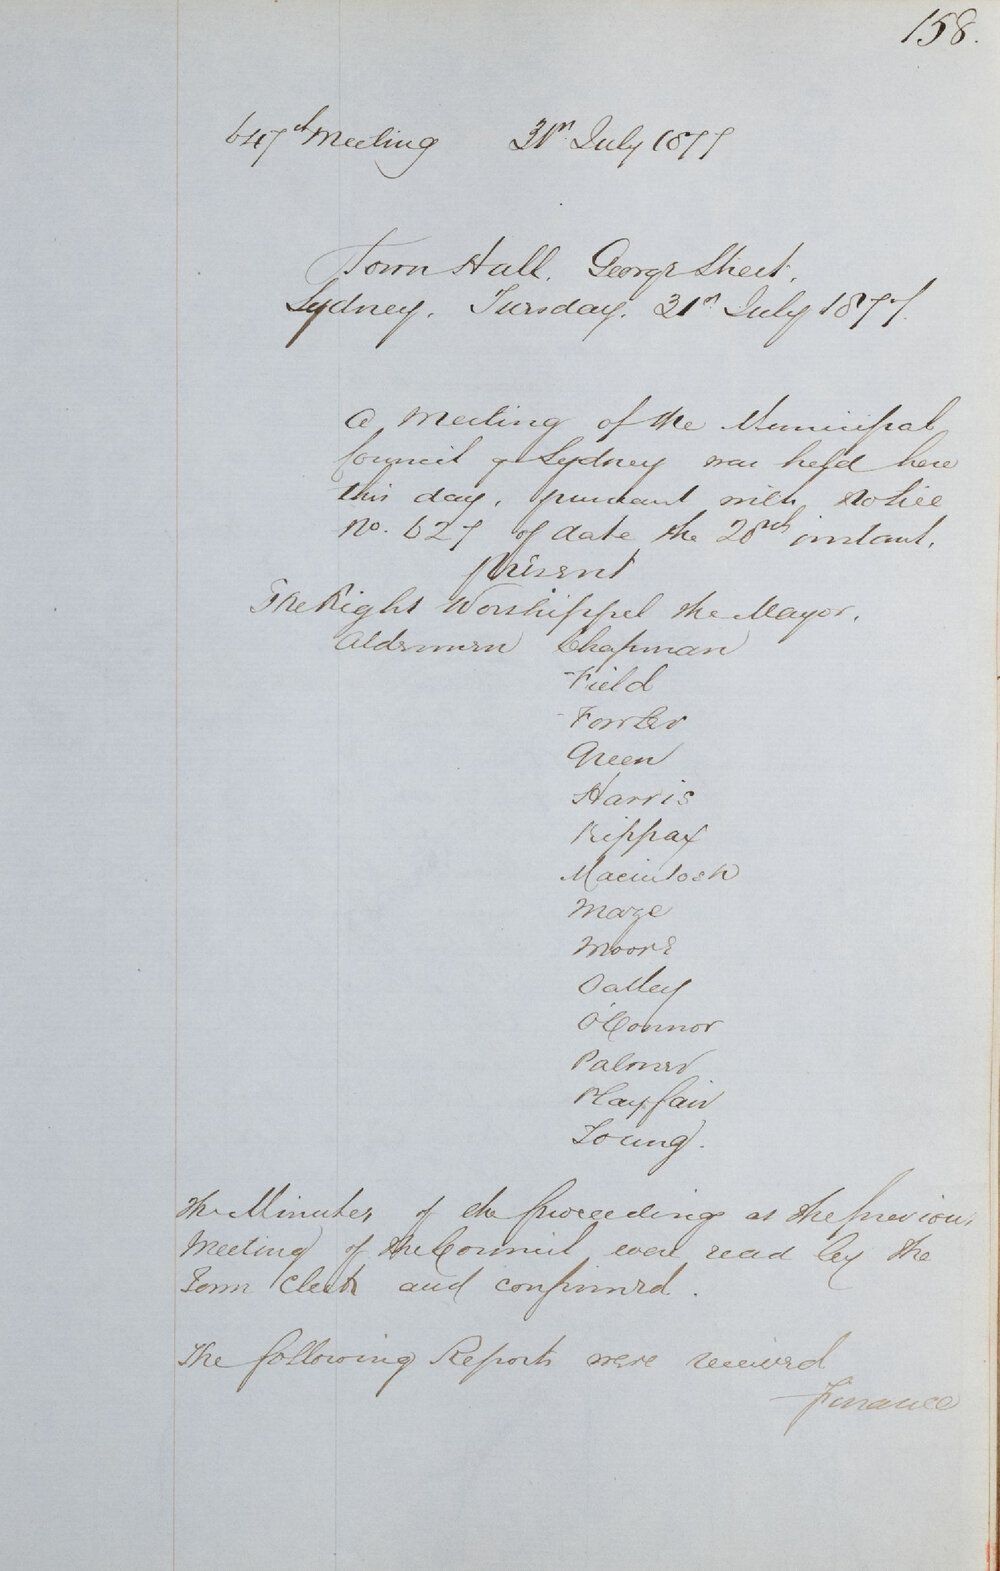 158.
647th Meeting 31st July 1877
Town Hall. George Street.
Sydney. Tuesday. 31st July 1877.
A Meeting of the Municipal
Council of Sydney was held here
this day, pursuant with Notice
No. 627 of date the 28th instant.
Present
The Right Worshippel the Mayor.
Aldermen Chapman
Field
Fowler
Green
Harris
Kippax
Macintosh
Maze
Moore
Oatley
O'Connor
Palmer
Playfair
Young.
The Minutes of the proceeding at the previous
Meeting of the Council were read by the
Town Clerk and confirmed.
The following Reports were received
Finance